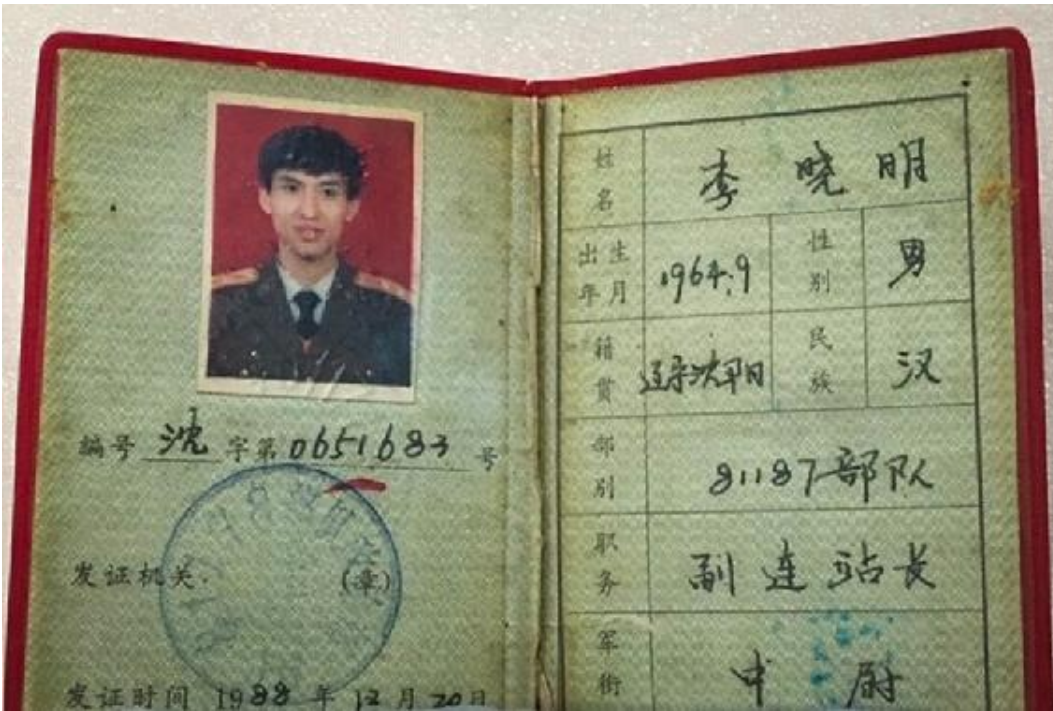 编号 沈 字第 0651683 号
发证机关 (章)
发证时间 1988 年 12 月 20 日
姓名 李晓明
出生年月 1964.9 性别 男
籍贯 辽宁沈阳 民族 汉
部别 81187部队
职务 副连站长
军衔 中尉